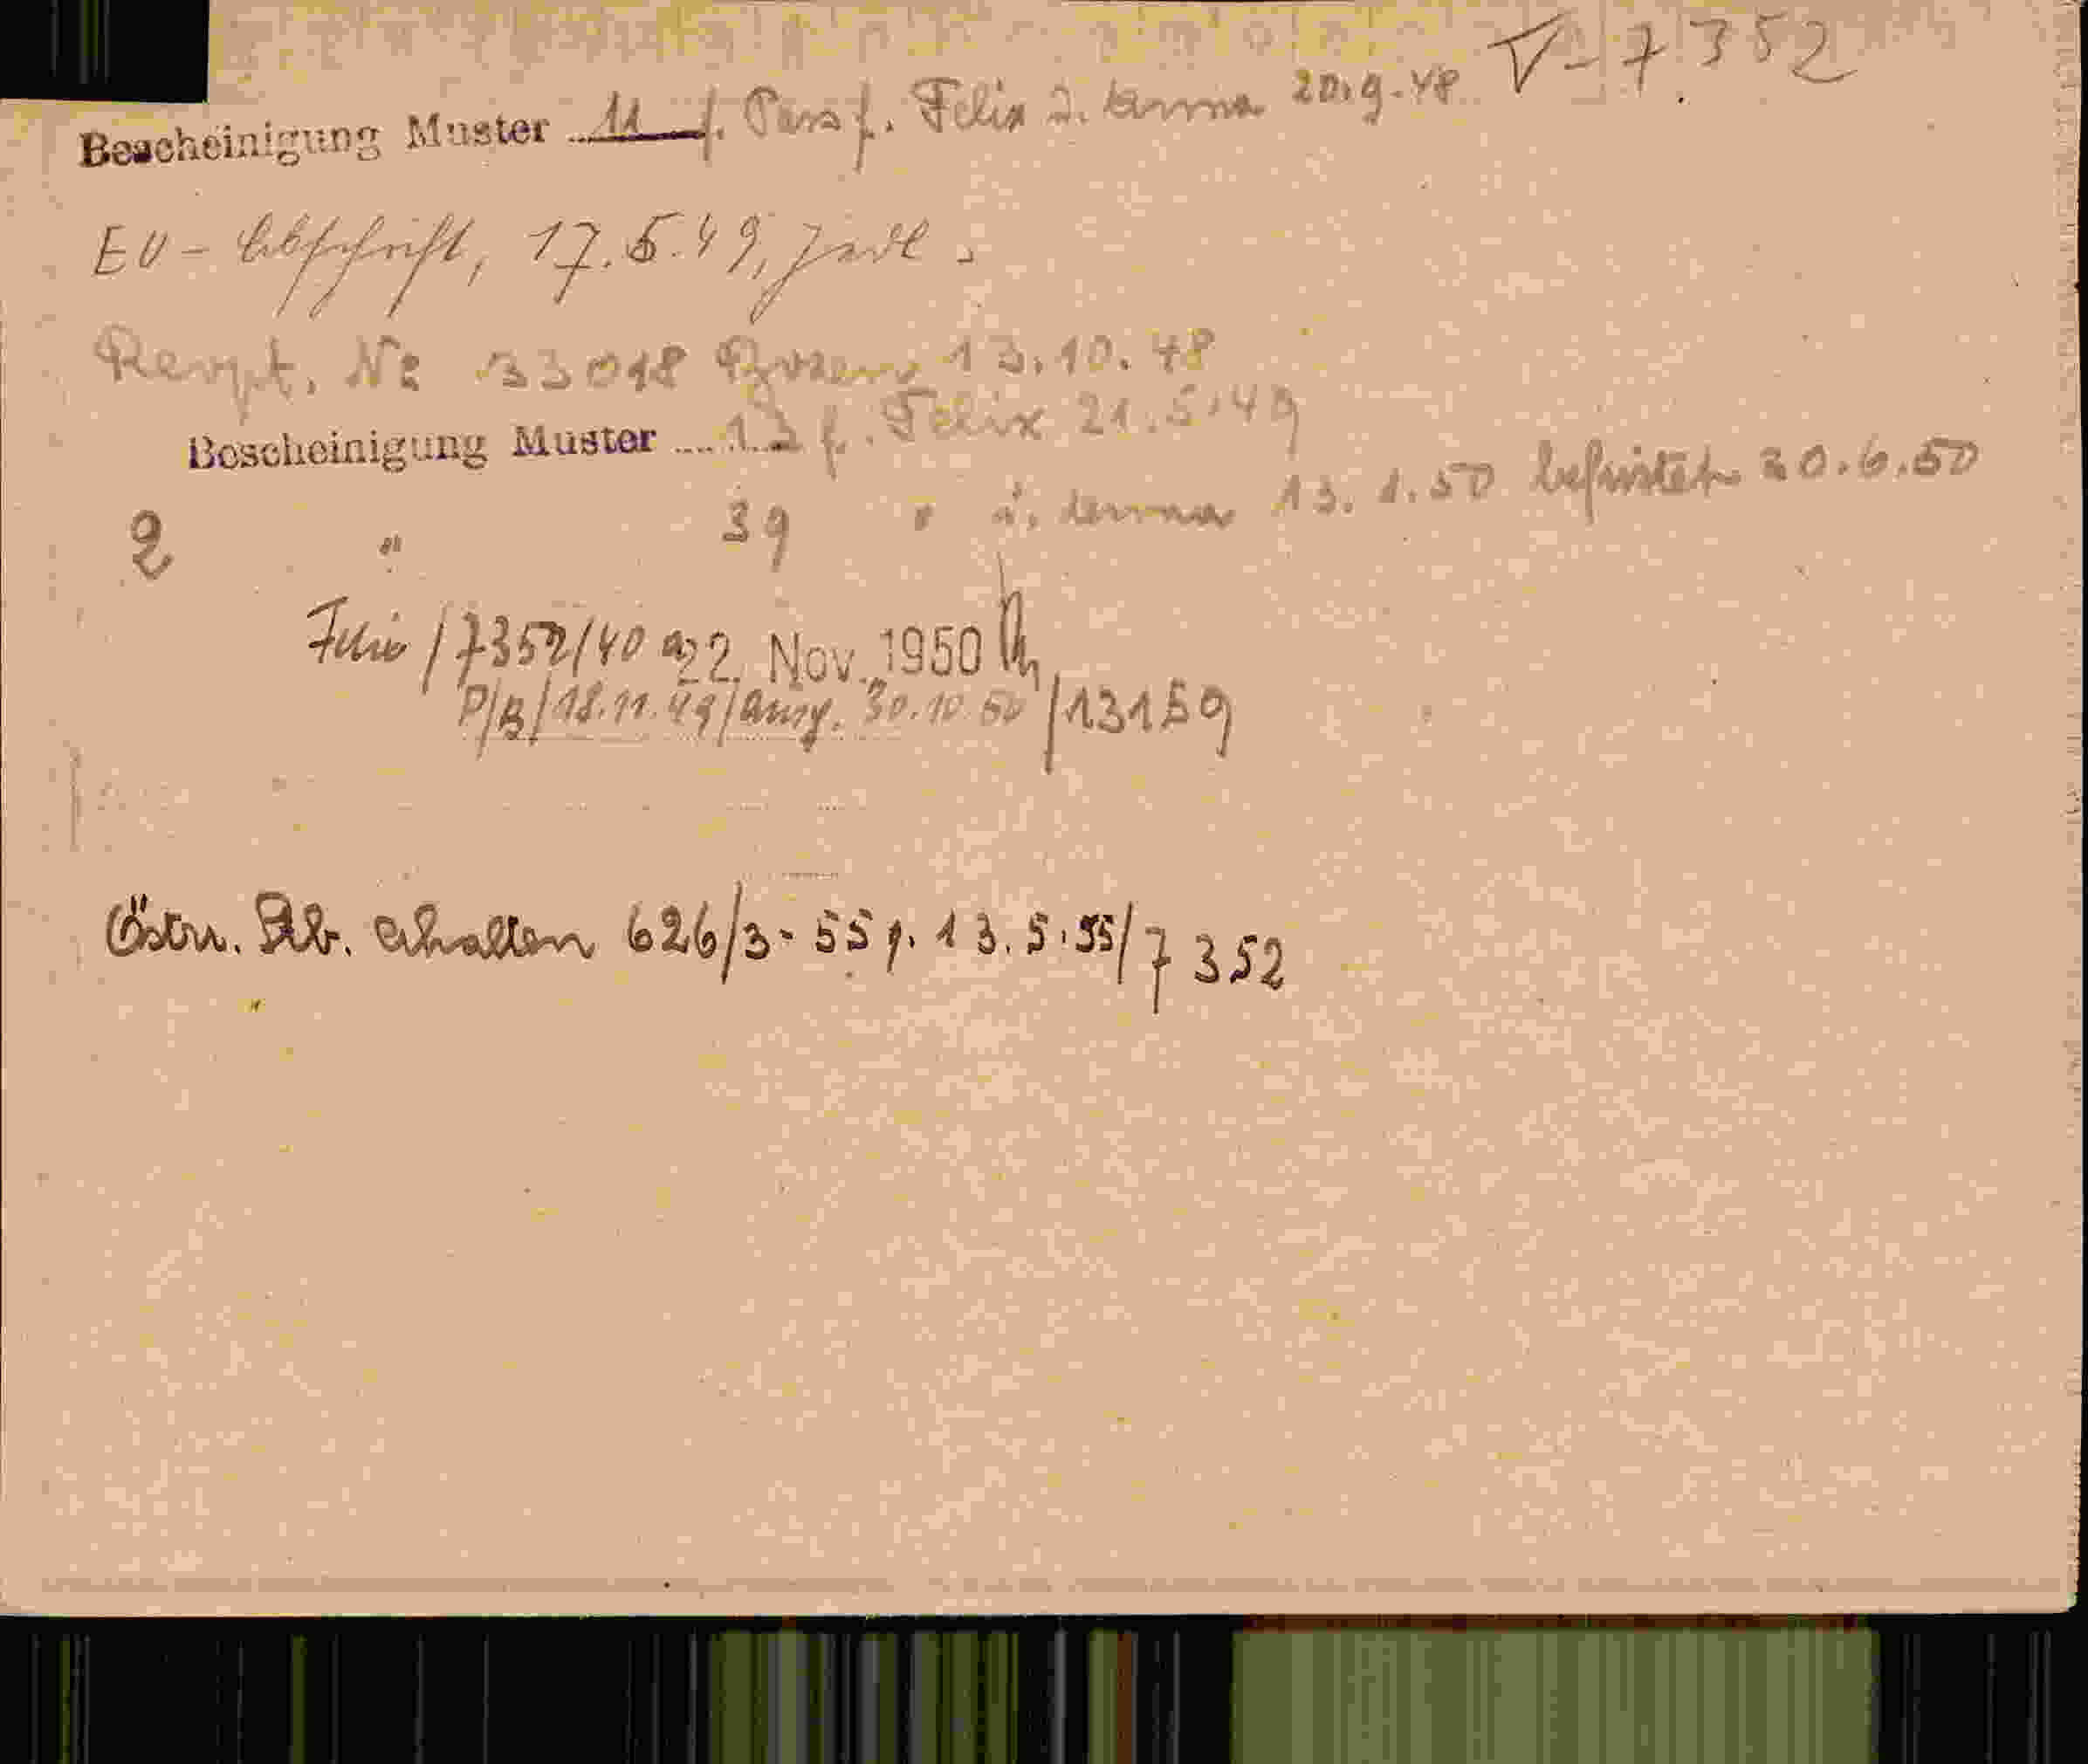 V-7352
Bescheinigung Muster 11 f. Pass f. Felix u. Anna 20.9.48
EU-Abschrift, 17.5.49,
Revpt. № 33018 Bozen 13.10.48
Bescheinigung Muster 12 f. Felix 21.5.49
2 " 39 " u. Anna 13.1.50 befristet 30.6.50
Felix/7352/40 a 22. Nov. 1950
P/B/18.11.49/Ausg. 30.10.50/13159
Östr. Stb. erhalten 626/3-55 v. 13.5.55/7352